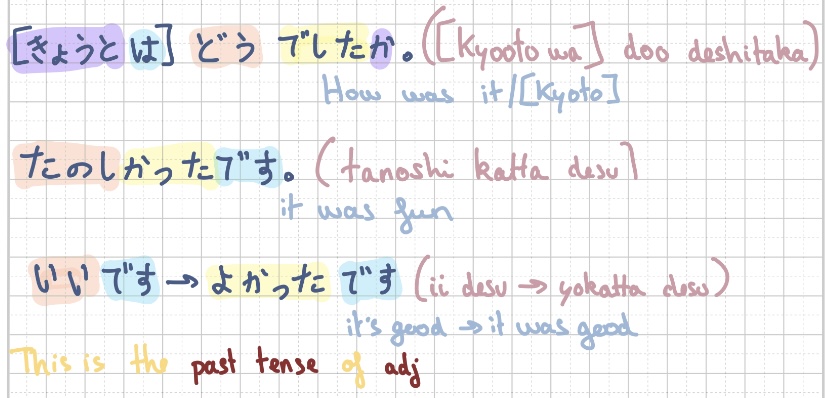 [きょうと は] どう でしたか。([Kyooto wa] doo deshitaka)
How was it/[Kyoto]
たのしかったです。(tanoshi katta desu)
it was fun
いい です → よかった です (ii desu → yokatta desu)
it's good → it was good
This is the past tense of adj